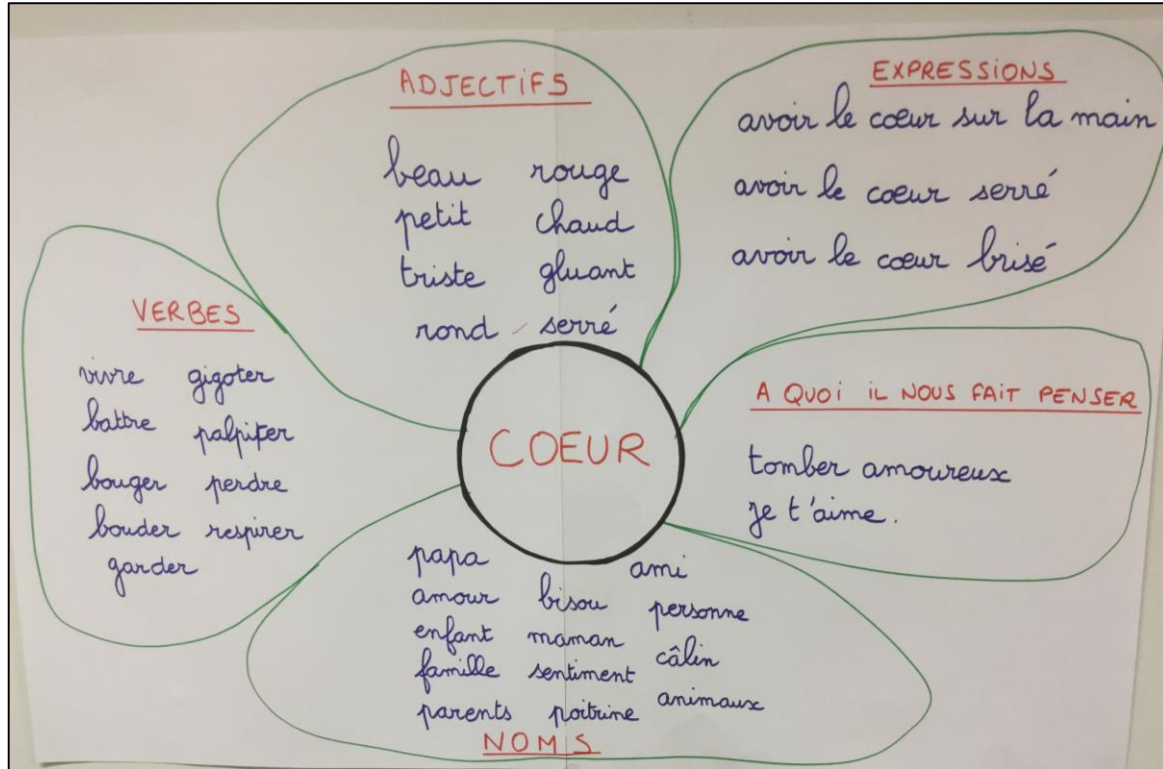 ADJECTIFS
beau rouge
petit chaud
triste gluant
rond serré
EXPRESSIONS
avoir le cœur sur la main
avoir le cœur serré
avoir le cœur brisé
VERBES
vivre gigoter
battre palpiter
bouger perdre
bouder respirer
garder
COEUR
A QUOI IL NOUS FAIT PENSER
tomber amoureux
je t'aime.
papa ami
amour bisou personne
enfant maman câlin
famille sentiment
parents poitrine animaux
NOMS